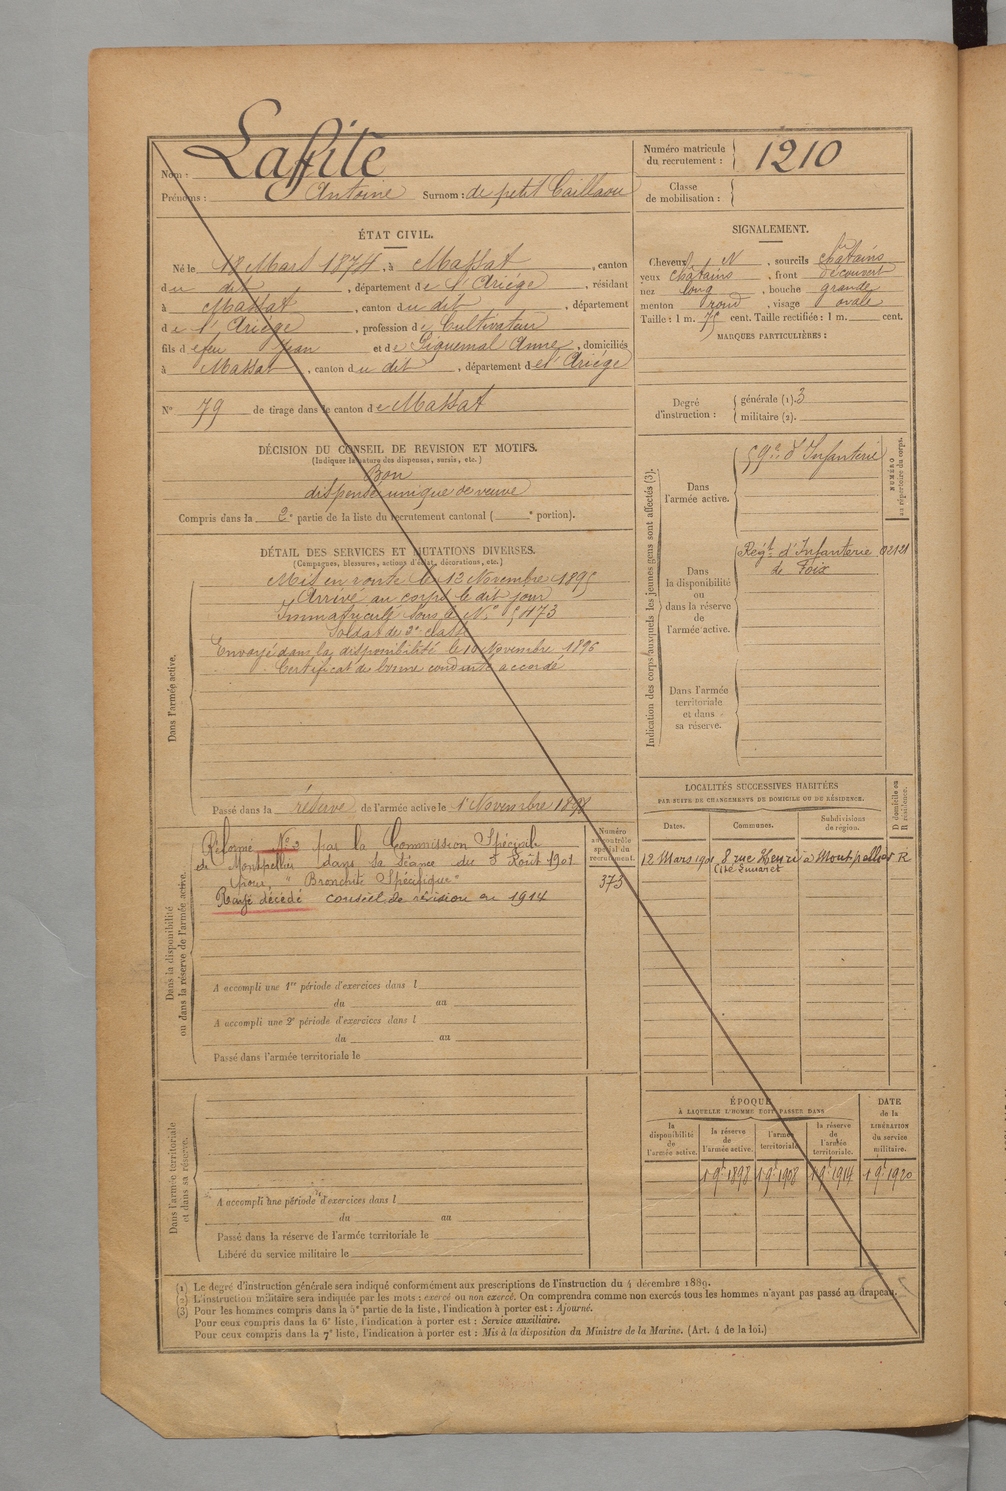 Nom : Laffite
Numéro matricule du recrutement : 1210
Prénoms : Antoine Surnom : de petit Caillaou
Classe de mobilisation :
ÉTAT CIVIL.
Né le 18 Mars 1874, à Massat, canton
du dit, département de l'Ariége, résidant
à Massat, canton du dit, département
de l'Ariége, profession de Cultivateur
fils de feu Jean et de Piquemal Anne, domiciliés
à Massat, canton du dit, département de l'Ariége
N° 79 de tirage dans le canton de Massat
SIGNALEMENT.
Cheveux N, sourcils châtains
yeux châtains, front découvert
nez long, bouche grande
menton rond, visage ovale
Taille : 1 m. 75 cent. Taille rectifiée : 1 m. cent.
MARQUES PARTICULIÈRES :
Degré d'instruction : générale (1). 3
militaire (2).
DÉCISION DU CONSEIL DE REVISION ET MOTIFS.
(Indiquer la nature des dispenses, sursis, etc.)
Bon
dispensé unique de veuve
Compris dans la 2e partie de la liste du recrutement cantonal ( e portion).
DÉTAIL DES SERVICES ET MUTATIONS DIVERSES.
(Campagnes, blessures, actions d'éclat, décorations, etc.)
Dans l'armée active.
Mis en route le 13 Novembre 1895
Arrivé au corps le dit jour
Immatriculé sous le N° 5473
Soldat de 2e classe
Envoyé dans la disponibilité le 10 Novembre 1896
Certificat de bonne conduite accordé
Passé dans la réserve de l'armée active le 1 Novembre 1898
Indication des corps auxquels les jeunes gens sont affectés (3).
NUMÉRO au répertoire du corps.
Dans l'armée active.
59e d'Infanterie
Dans la disponibilité ou dans la réserve de l'armée active.
Régt d'Infanterie 02121
de Foix
Dans l'armée territoriale et dans sa réserve.
Dans la disponibilité ou dans la réserve de l'armée active.
Numéro au contrôle spécial du recrutement.
373
Réformé N° 2 par la Commission Spéciale
de Montpellier dans sa séance du 5 Août 1901
pour "Bronchite Spécifique"
Rayé décédé conseil de révision en 1914
A accompli une 1re période d'exercices dans l
du au
A accompli une 2e période d'exercices dans l
du au
Passé dans l'armée territoriale le
LOCALITÉS SUCCESSIVES HABITÉES
PAR SUITE DE CHANGEMENTS DE DOMICILE OU DE RÉSIDENCE.
Dates. Communes. Subdivisions de région. D domicile ou R résidence.
12 Mars 1901 8 rue Henri à Montpellier R
Cité
Dans l'armée territoriale et dans sa réserve.
A accompli une période d'exercices dans l
du au
Passé dans la réserve de l'armée territoriale le
Libéré du service militaire le
ÉPOQUE
À LAQUELLE L'HOMME DOIT PASSER DANS
la disponibilité de l'armée active.
la réserve de l'armée active.
l'armée territoriale.
la réserve de l'armée territoriale.
DATE de la LIBÉRATION du service militaire.
1 9bre 1898 1 9bre 1908 1 9bre 1914 1 9bre 1920
(1) Le degré d'instruction générale sera indiqué conformément aux prescriptions de l'instruction du 4 décembre 1889.
(2) L'instruction militaire sera indiquée par les mots : exercé ou non exercé. On comprendra comme non exercés tous les hommes n'ayant pas passé au drapeau.
(3) Pour les hommes compris dans la 5e partie de la liste, l'indication à porter est : Ajourné.
Pour ceux compris dans la 6e liste, l'indication à porter est : Service auxiliaire.
Pour ceux compris dans la 7e liste, l'indication à porter est : Mis à la disposition du Ministre de la Marine. (Art. 4 de la loi.)